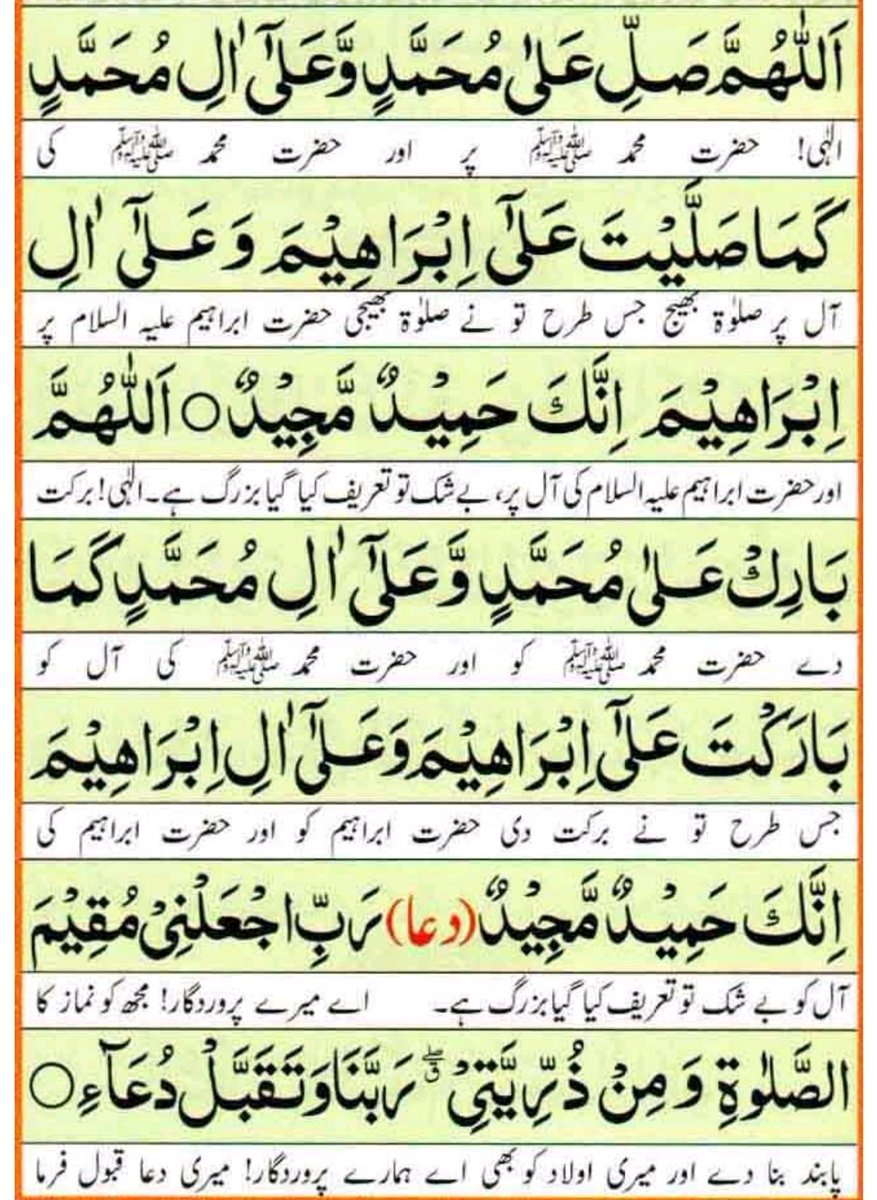 اَللّٰهُمَّ صَلِّ عَلٰى مُحَمَّدٍ وَّعَلٰٓى اٰلِ مُحَمَّدٍ
الٰہی! حضرت محمد ﷺ پر اور حضرت محمد ﷺ کی
كَمَا صَلَّيْتَ عَلٰٓى اِبْرَاهِيْمَ وَ عَلٰٓى اٰلِ
آل پر صلوٰۃ بھیج جس طرح تو نے صلوٰۃ بھیجی حضرت ابراہیم علیہ السلام پر
اِبْرَاهِيْمَ اِنَّكَ حَمِيْدٌ مَّجِيْدٌ ○ اَللّٰهُمَّ
اور حضرت ابراہیم علیہ السلام کی آل پر، بے شک تو تعریف کیا گیا بزرگ ہے۔ الٰہی! برکت
بَارِكْ عَلٰى مُحَمَّدٍ وَّعَلٰٓى اٰلِ مُحَمَّدٍ كَمَا
دے حضرت محمد ﷺ کو اور حضرت محمد ﷺ کی آل کو
بَارَكْتَ عَلٰٓى اِبْرَاهِيْمَ وَعَلٰٓى اٰلِ اِبْرَاهِيْمَ
جس طرح تو نے برکت دی حضرت ابراہیم کو اور حضرت ابراہیم کی
اِنَّكَ حَمِيْدٌ مَّجِيْدٌ (دعا) رَبِّ اجْعَلْنِىْ مُقِيْمَ
آل کو بے شک تو تعریف کیا گیا بزرگ ہے۔ اے میرے پروردگار! مجھ کو نماز کا
الصَّلٰوةِ وَ مِنْ ذُرِّيَّتِىْ ۖق رَبَّنَا وَتَقَبَّلْ دُعَآءِ ○
پابند بنا دے اور میری اولاد کو بھی اے ہمارے پروردگار! میری دعا قبول فرما